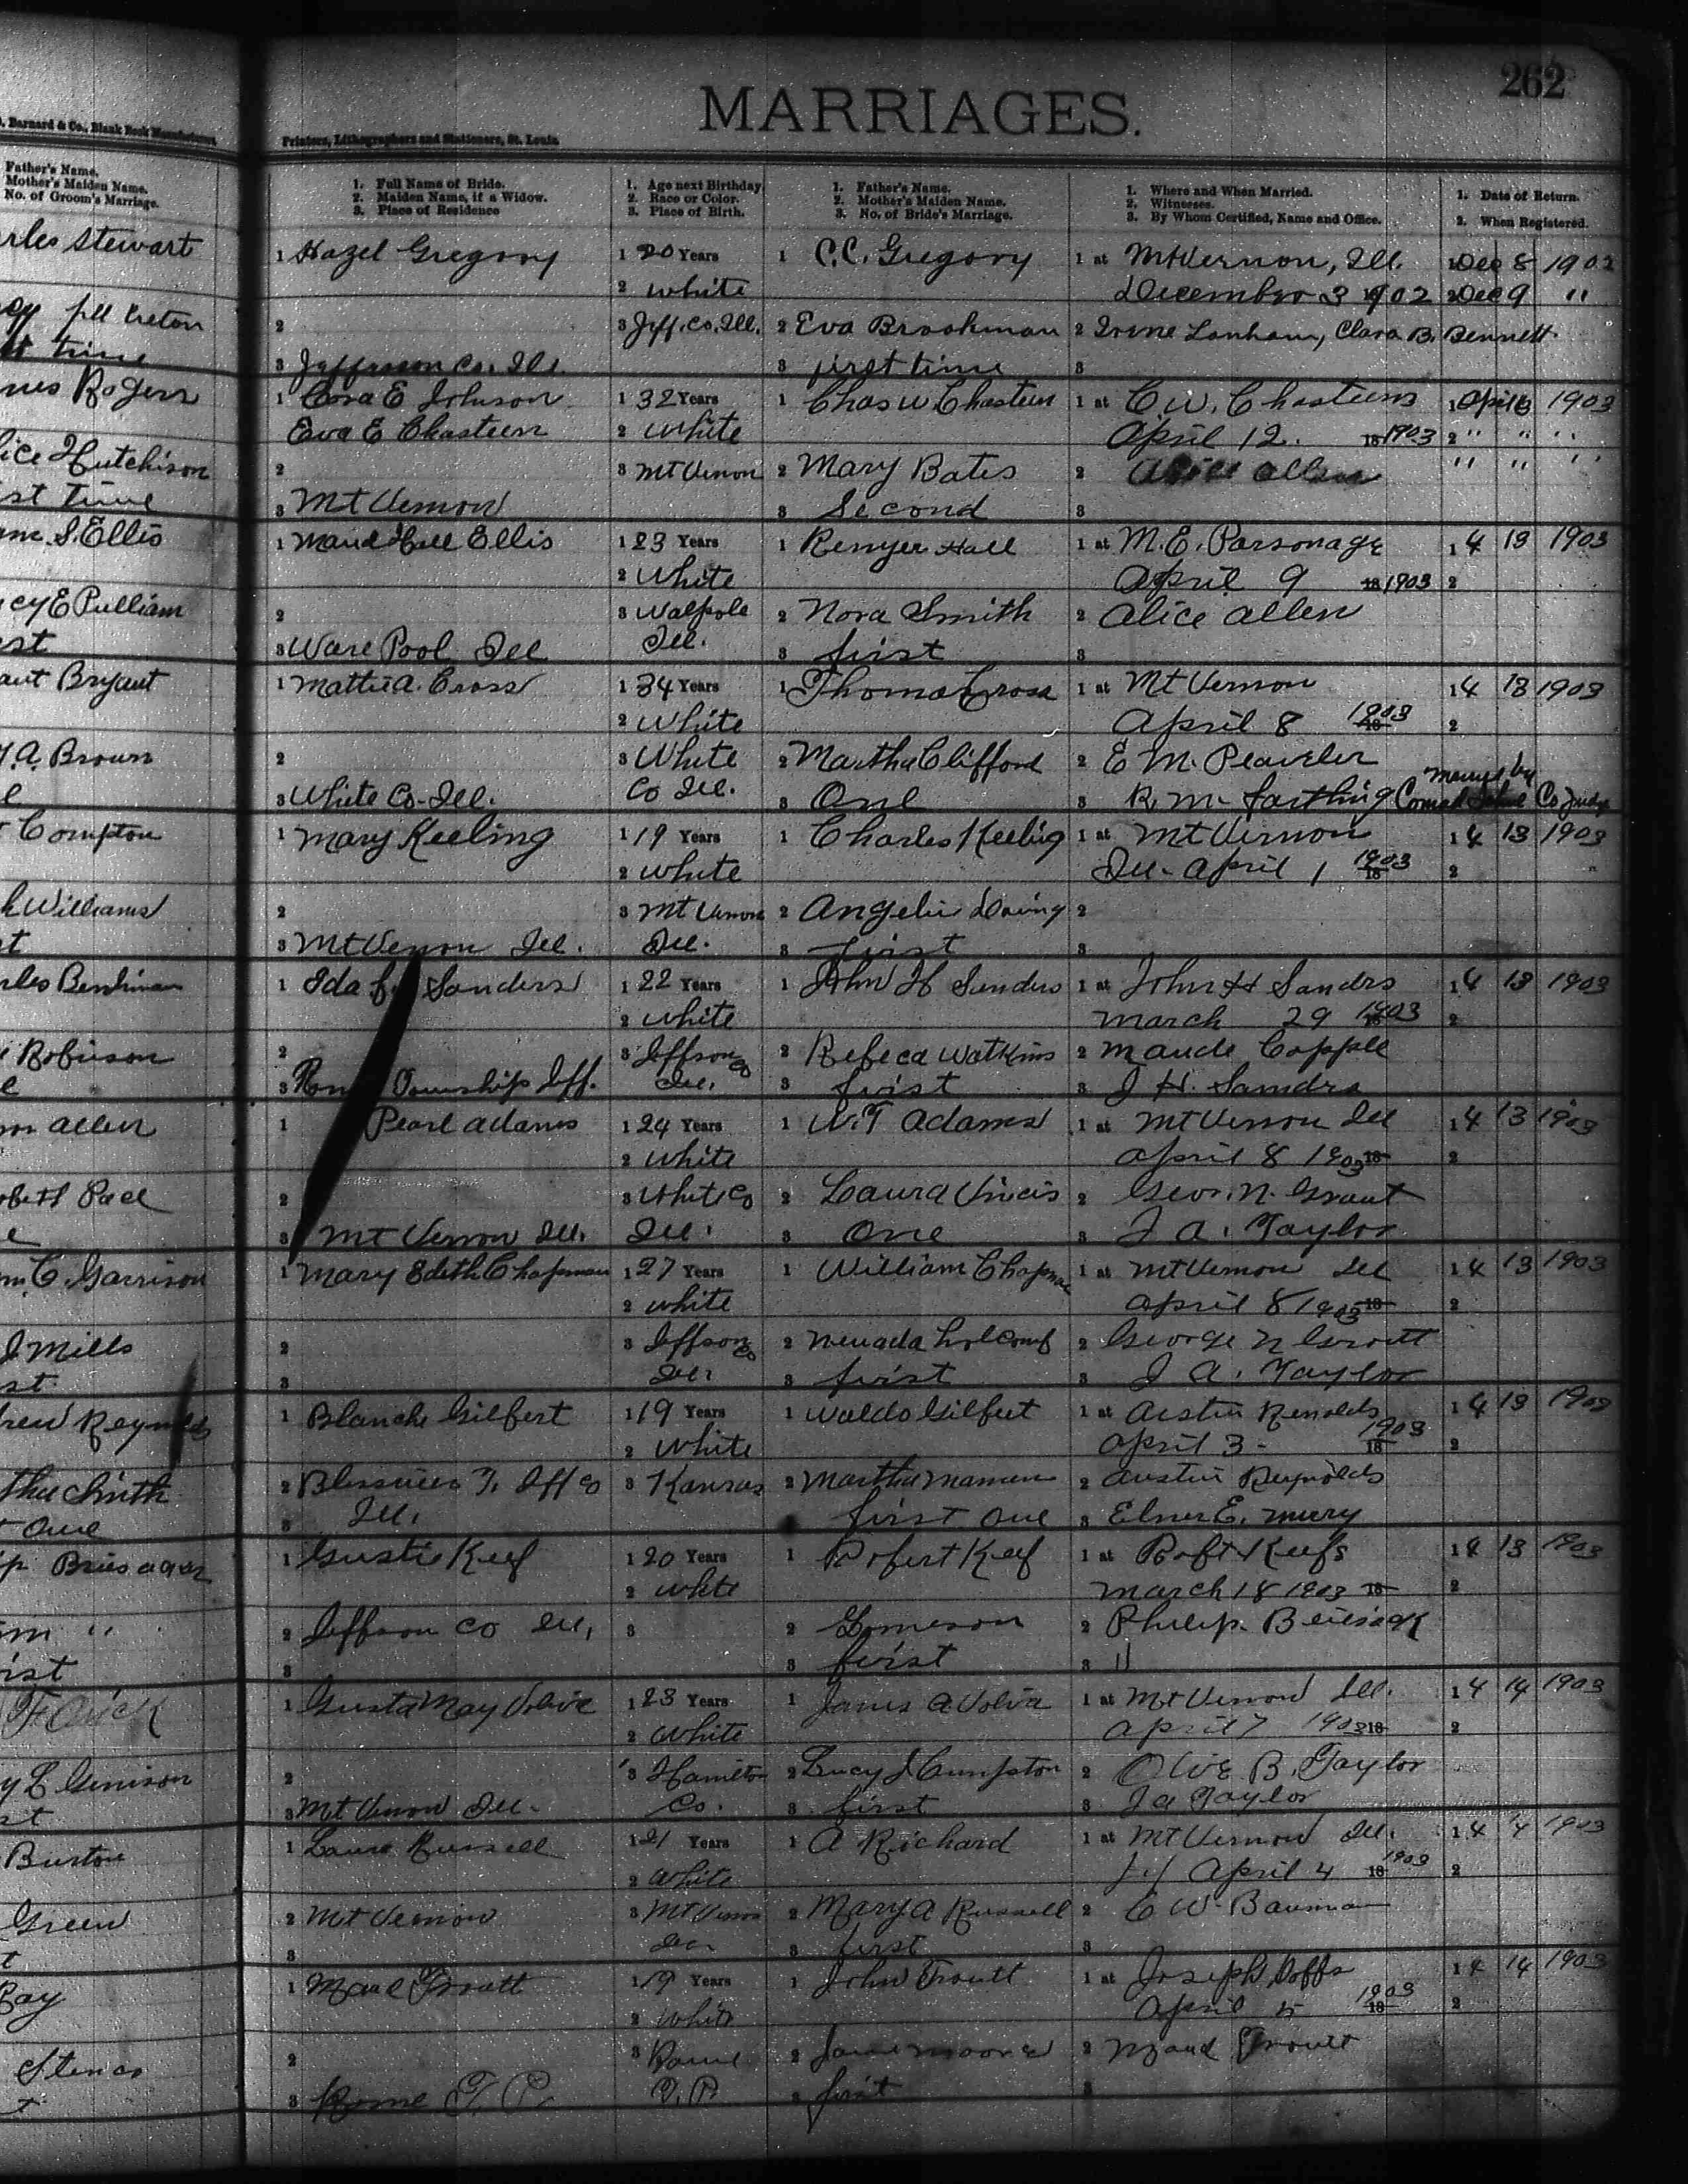 262
MARRIAGES.
Barnard & Co., Blank Book Manufacturers,
Printers, Lithographers and Stationers, St. Louis.
Father's Name.
Mother's Maiden Name.
No. of Groom's Marriage.
1. Full Name of Bride.
2. Maiden Name, if a Widow.
3. Place of Residence
1. Age next Birthday.
2. Race or Color.
3. Place of Birth.
1. Father's Name.
2. Mother's Maiden Name.
3. No. of Bride's Marriage.
1. Where and When Married.
2. Witnesses.
3. By Whom Certified, Name and Office.
1. Date of Return.
2. When Registered.
rles Stewart
1 Hazel Gregory 1 20 Years 1 C.C. Gregory 1 at Mt Vernon, Ill. 1 Dec 8 1902
2 white December 3 1902 2 Dec 9 "
2 3 Jeff. Co. Ill. 2 Eva Brookman 2 Irene Lanham, Clara B. Bennett
time
3 Jefferson Co. Ill. 3 first time 3
Rogers
1 Cora E Johnson 1 32 Years 1 Chas W. Chasteen 1 at C. W. Chasteens 1 April 13 1903
Eva E Chasteen 2 White April 12. 18 1903 2 " " "
ice Hutchison
2 3 Mt Vernon 2 Mary Bates 2 Allen " " "
st time
3 Mt Vernon 3 Second 3
S. Ellis
1 Maud Hall Ellis 1 23 Years 1 Renyer Hall 1 at M.E. Parsonage 1 4 13 1903
2 White April 9 18 1903 2
cy E Pulliam
2 3 Walpole 2 Nora Smith 2 Alice Allen
st
3 Ware Pool Ill Ill. 3 first 3
ant Bryant
1 Mattie A. Cross 1 34 Years 1 Thomas Cross 1 at Mt Vernon 1 4 13 1903
2 White April 8 18 1903 2
A. Brown
2 3 White 2 Martha Clifford 2 E M. Peavler
3 White Co. Ill. Co Ill. 3 One 3 R. M. Farthing Co Judge
Compton
1 Mary Keeling 1 19 Years 1 Charles Keeling 1 at Mt Vernon 1 4 13 1903
2 white Ill. April 1 18 1903 2
Williams
2 3 Mt Vernon 2 2
3 Mt Vernon Ill. Ill. 3 first 3
rles
1 Ida Sanders 1 22 Years 1 John H Sanders 1 at John H Sandrs 1 4 13 1903
2 white March 29 18 1903 2
Robinson
2 3 Jeffson Co 2 Rebeca Watkins 2 Maude Copple
3 Township Jeff. Ill. 3 first 3 J H. Sandrs
allen
1 Pearl adams 1 24 Years 1 W.T Adams 1 at Mt Vernon Ill 1 4 13 1903
2 white April 8 1903 18 2
Pace
2 3 White Co 2 Laura 2 Geor. N. Grant
3 Mt Vernon Ill. Ill. 3 One 3 J A. Taylor
C. Garrison
1 Mary Edith Chapman 1 27 Years 1 William Chapman 1 at Mt Vernon Ill 1 4 13 1903
2 white April 8 1903 18 2
J Mills
2 3 Jeffson Co 2 Nevada Holcomb 2 George N
st.
3 Ill. 3 first 3 J A. Taylor
rew Reynolds
1 Blanche Gilbert 1 19 Years 1 Waldo Gilbert 1 at Austin Renolds 1 4 13 1903
2 White April 3 - 18 1903 2
2 T. Jeff Co 3 Kansas 2 Martha 2 Austin Reynolds
One
3 Ill. first one 3 Elmer E.
1 Gustie Keef 1 20 Years 1 Robert Keef 1 at Robt Keefs 1 4 13 1903
2 white March 18 1903 18 2
2 Jeffson Co Ill. 3 2 2 Philip
ist
3 3 first 3 "
1 Gusta May Volive 1 23 Years 1 James A Voliva 1 at Mt Vernon Ill. 1 4 14 1903
2 White April 7 1903 18 2
2 3 Hamilton 2 Lucy J Cumpston 2 Olive B. Taylor
3 Mt Vernon Ill. Co. 3 first 3 J A Taylor
Burton
1 Laura Russell 1 21 Years 1 A Richard 1 at Mt Vernon Ill. 1 4 14 1903
2 White April 4 18 1903 2
Green
2 Mt Vernon 3 Mt Vernon 2 Mary A Russell 2 C W. Bauman
3 3 first 3
Ray
1 Troutt 1 19 Years 1 John Troutt 1 at Joseph 1 4 14 1903
2 White April 5 18 1903 2
2 3 Rome 2 Jane Moore 2 Maud Troutt
3 Rome T. P. T. P. 3 first 3